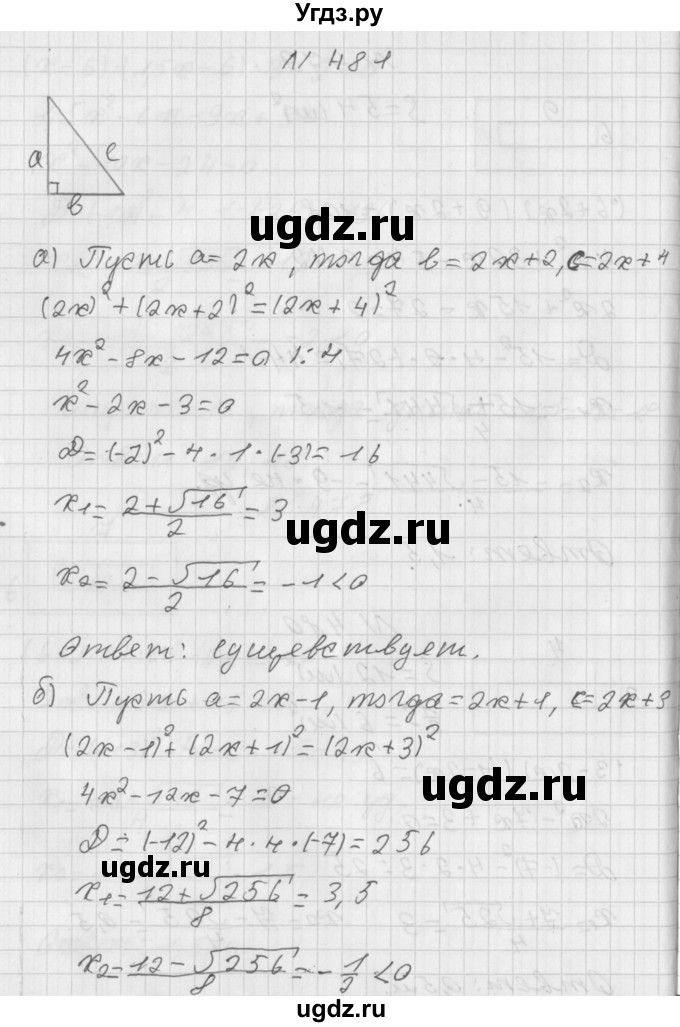 Угдз.ру
N 481
a
c
в
ugdz.ru
а) Пусть a = 2x, тогда в = 2x+2, c=2x+4
(2x)² + (2x+2)² = (2x+4)²
4x² - 8x - 12 = 0 | : 4
x² - 2x - 3 = 0
ugdz.ru
D = (-2)² - 4 · 1 · (-3) = 16
x₁ = (2 + √16)/2 = 3
ugdz.ru
x₂ = (2 - √16)/2 = -1 < 0
ugdz.ru
Ответ: существствует.
б) Пусть a = 2x-1, тогда = 2x+1, c=2x+3
(2x-1)² + (2x+1)² = (2x+3)²
ugdz.ru
4x² - 12x - 7 = 0
D = (-12)² - 4 · 4 · (-7) = 256
x₁ = (12 + √256)/8 = 3,5
ugdz.ru
x₂ = (12 - √256)/8 = -1/2 < 0
ugdz.ru